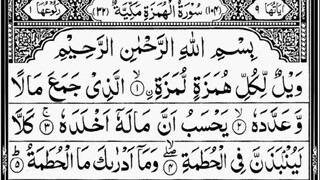 اٰیَاتُهَا ۹ (۱۰۴) سُوْرَةُ الْهُمَزَةِ مَكِّیَّةٌ (۳۲) رُكُوْعُهَا ۱
بِسْمِ اللّٰهِ الرَّحْمٰنِ الرَّحِیْمِ
وَیْلٌ لِّكُلِّ هُمَزَةٍ لُّمَزَةِ ۙ۝۱ الَّذِیْ جَمَعَ مَالًا
وَّ عَدَّدَهٗ ۙ۝۲ یَحْسَبُ اَنَّ مَالَهٗۤ اَخْلَدَهٗ ۚ۝۳ كَلَّا
لَیُنْۢبَذَنَّ فِی الْحُطَمَةِ ؗۖ۝۴ وَمَاۤ اَدْرٰىكَ مَا الْحُطَمَةُ ؕ۝۵